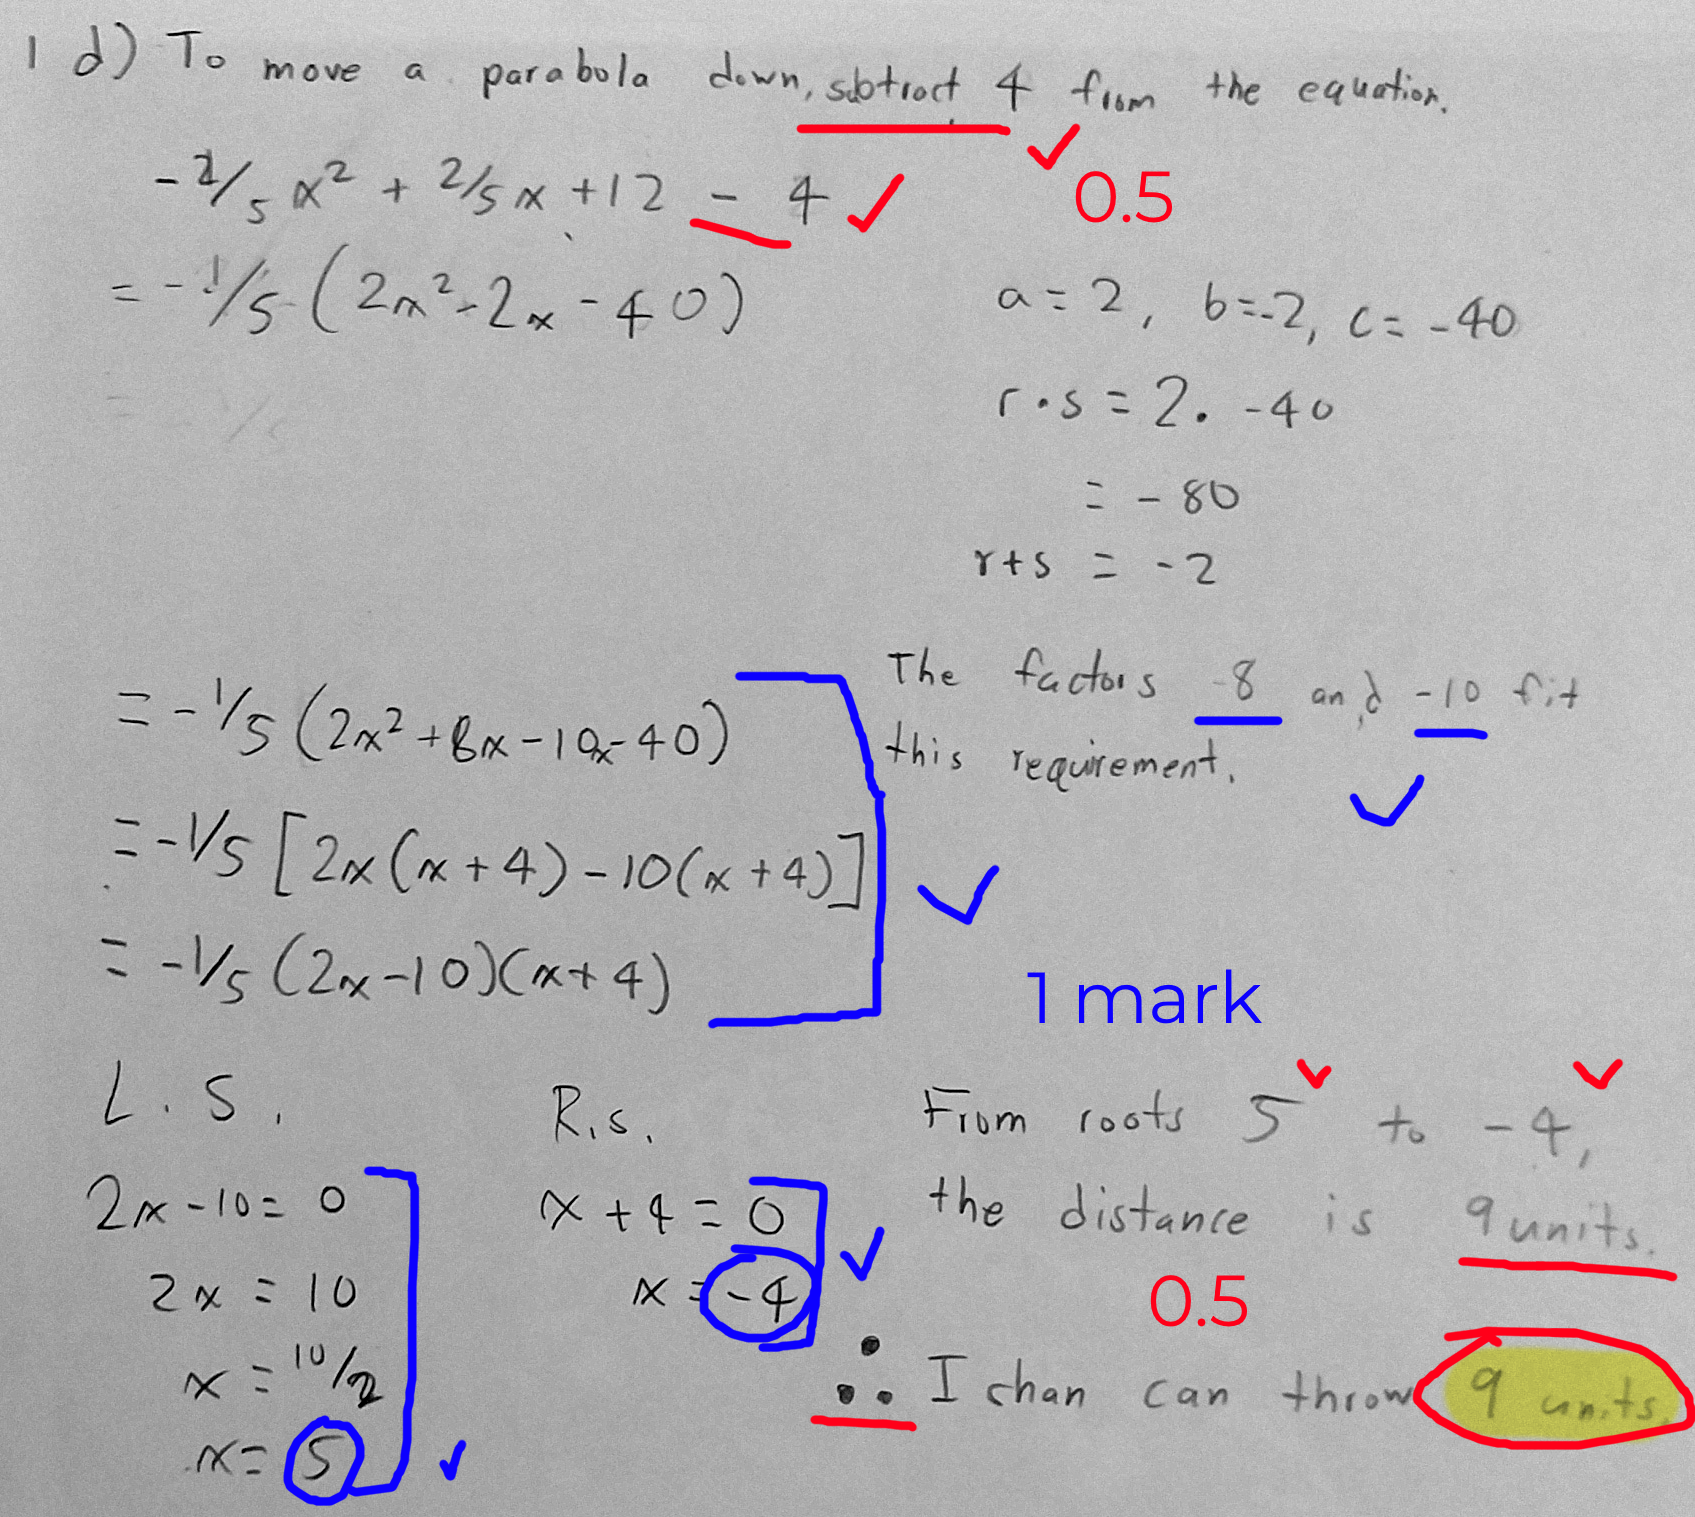 1 d) To move a parabola down, subtract 4 from the equation.
-2/5 x² + 2/5 x + 12 - 4
0.5
= -1/5 (2x² - 2x - 40)
a = 2, b = -2, c = -40
r · s = 2 · -40
= -80
r + s = -2
The factors -8 and -10 fit
this requirement.
= -1/5 (2x² + 8x - 10x - 40)
= -1/5 [2x(x + 4) - 10(x + 4)]
= -1/5 (2x - 10)(x + 4)
1 mark
L.S.
2x - 10 = 0
2x = 10
x = 10/2
x = 5
R.S.
x + 4 = 0
x = -4
From roots 5 to -4,
the distance is 9 units.
0.5
∴ I chan can throw 9 units.